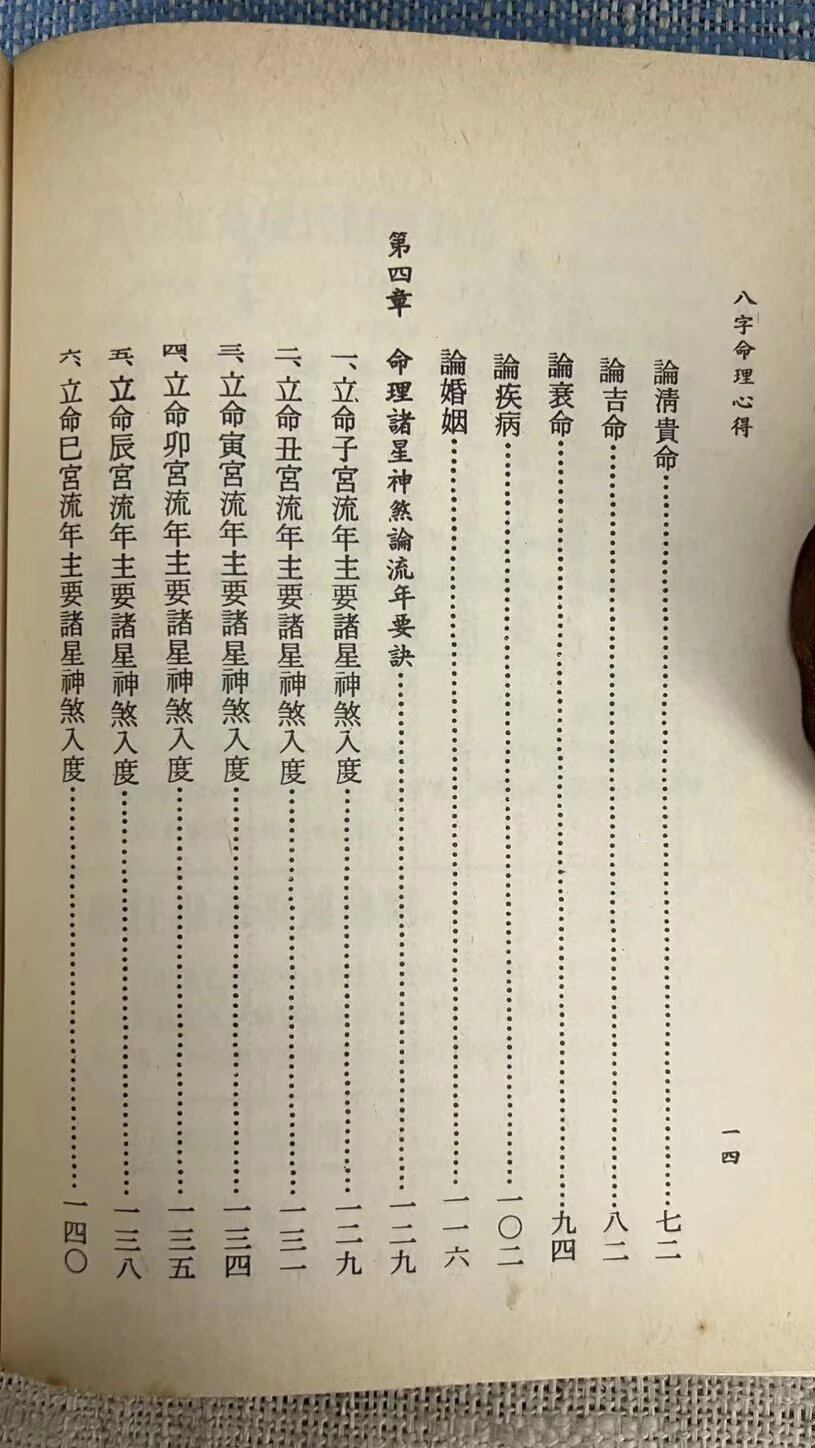 八字命理心得
一四
論清貴命……七二
論吉命……八二
論衰命……九四
論疾病……一〇二
論婚姻……一一六
第四章 命理諸星神煞論流年要訣……一二九
一、立命子宮流年主要諸星神煞入度……一二九
二、立命丑宮流年主要諸星神煞入度……一三一
三、立命寅宮流年主要諸星神煞入度……一三四
四、立命卯宮流年主要諸星神煞入度……一三五
五、立命辰宮流年主要諸星神煞入度……一三八
六、立命巳宮流年主要諸星神煞入度……一四〇